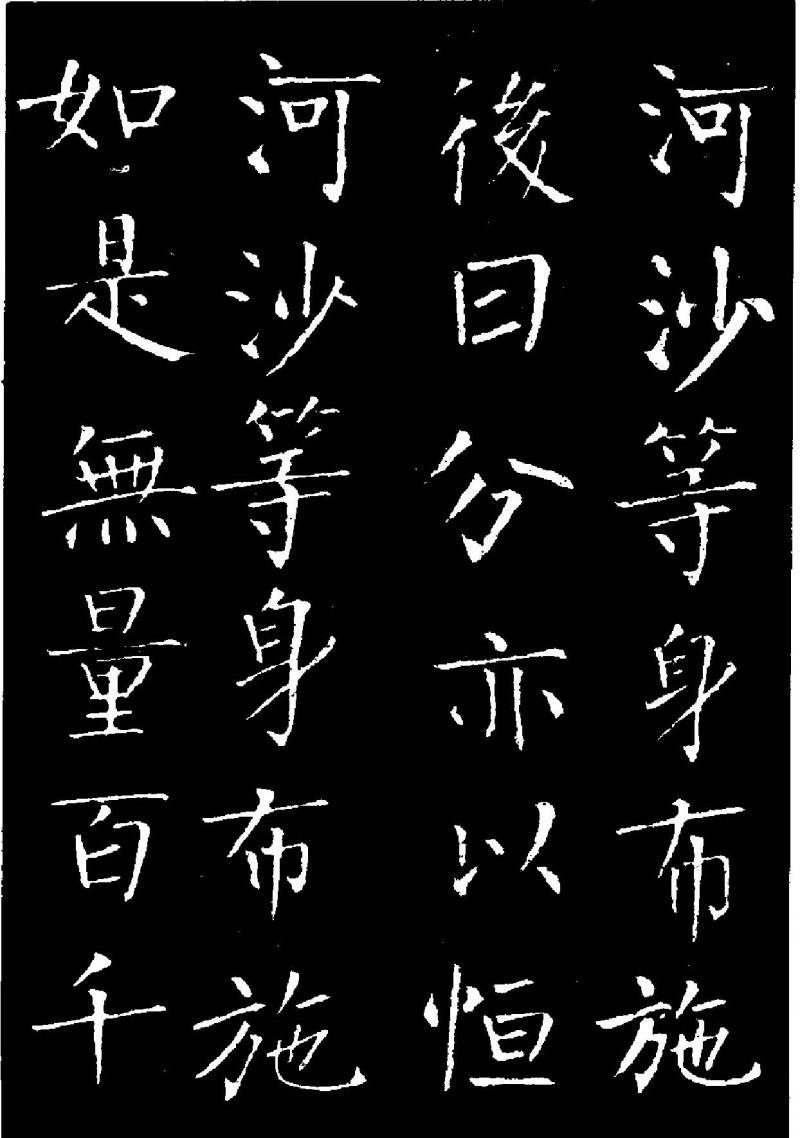 河沙等身布施
後日分亦以恒
河沙等身布施
如是無量百千